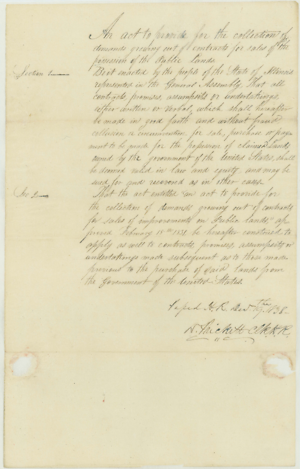 An act to provide for the collection of
demands growing out of contracts for sales of the
possession of the Public Lands
Section 1 Be it enacted by the people of the State of Illinois
represented in the General Assembly, That all
contracts, promises, assumpsits or undertakings
either written or verbal, which shall hereafter
be made in good faith and without fraud
collusion or circumvention for sale, purchase or pay-
ment to be made for the possession of claimed lands
owned by the government of the United States, shall
be deemed valid in law and equity, and may be
sued for and recovered as in other cases.
Sec 2 That the act entitled "an act to provide for
the collection of demands growing out of contracts
for sales of improvements on Public lands" ap-
proved February 15th 1831 be hereafter construed to
apply as well to contracts, promises, assumpsits or
undertakings made subsequent as to those made
previous to the purchase of said lands from
the Government of the United States.
Passed H.R. 1838
D. Prickett C.H.R.